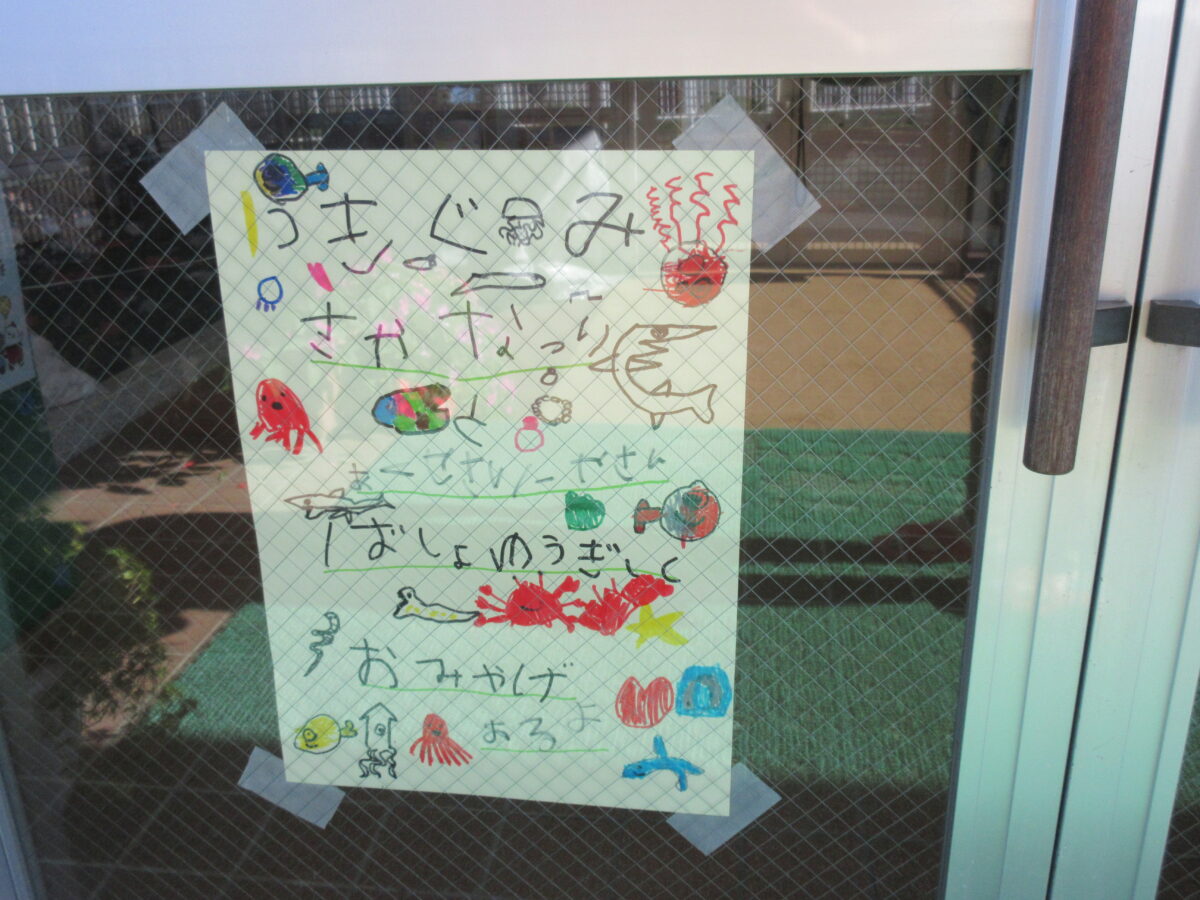 つきぐみ
さかなつり
と
あくせさりーやさん
ばしょゆうぎしつ
おみやげ
あるよ